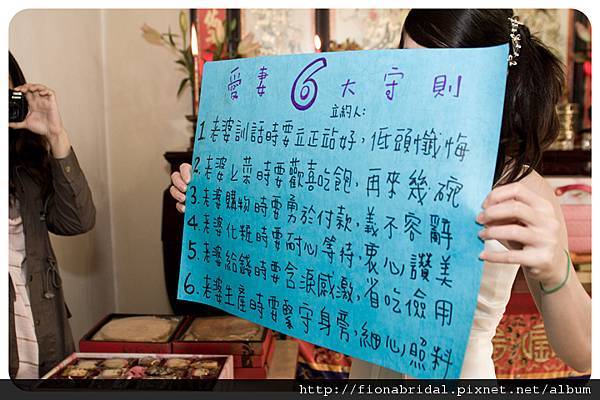 愛妻6大守則
立約人:
1.老婆訓話時要立正站好,低頭懺悔
2.老婆上菜時要歡喜吃飽,再來幾碗
3.老婆購物時要勇於付款,義不容辭
4.老婆化粧時要耐心等待,衷心讚美
5.老婆給錢時要含淚感激,省吃儉用
6.老婆生產時要緊守身旁,細心照料
http://fionabridal.pixnet.net/album